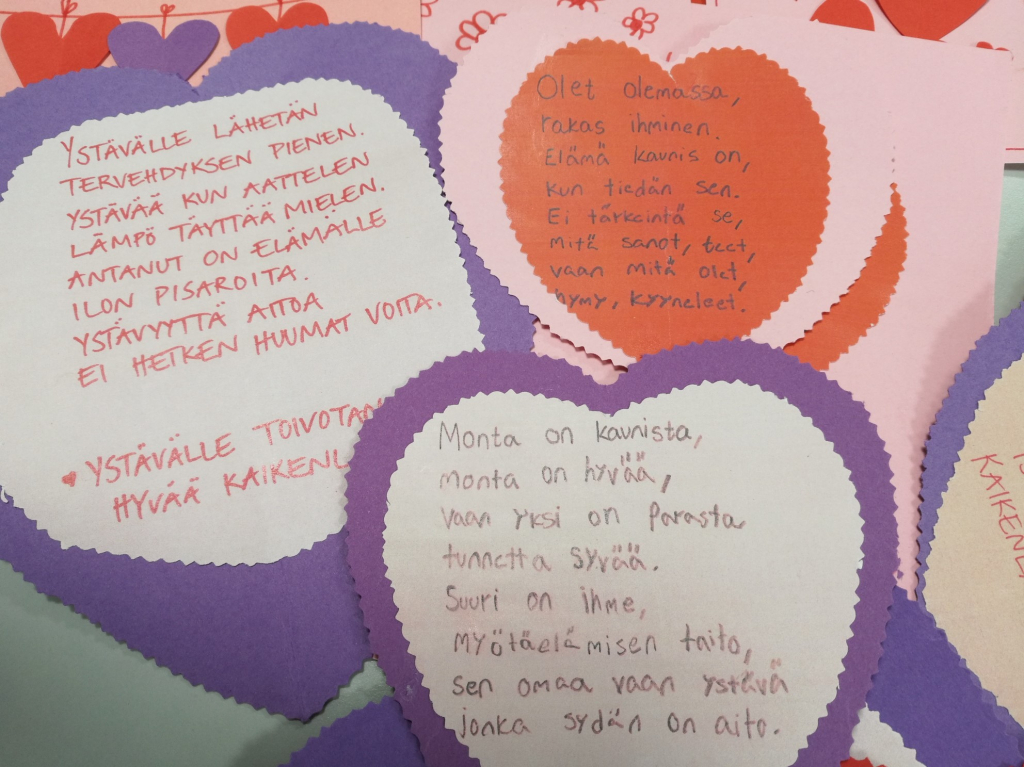 YSTÄVÄLLE LÄHETÄN
TERVEHDYKSEN PIENEN.
YSTÄVÄÄ KUN AATTELEN
LÄMPÖ TÄYTTÄÄ MIELEN.
ANTANUT ON ELÄMÄLLE
ILON PISAROITA.
YSTÄVYYTTÄ AITOA
EI HETKEN HUUMAT VOITA.
YSTÄVÄLLE
HYVÄÄ
Olet olemassa,
rakas ihminen.
Elämä kaunis on,
kun tiedän sen.
Ei tärkeintä se,
mitä sanot, teet,
vaan mitä olet,
hymy, kyyneleet.
Monta on kaunista,
monta on hyvää,
vaan yksi on parasta
tunnetta syvää.
Suuri on ihme,
myötäelämisen taito,
sen omaa vaan ystävä
jonka sydän on aito.